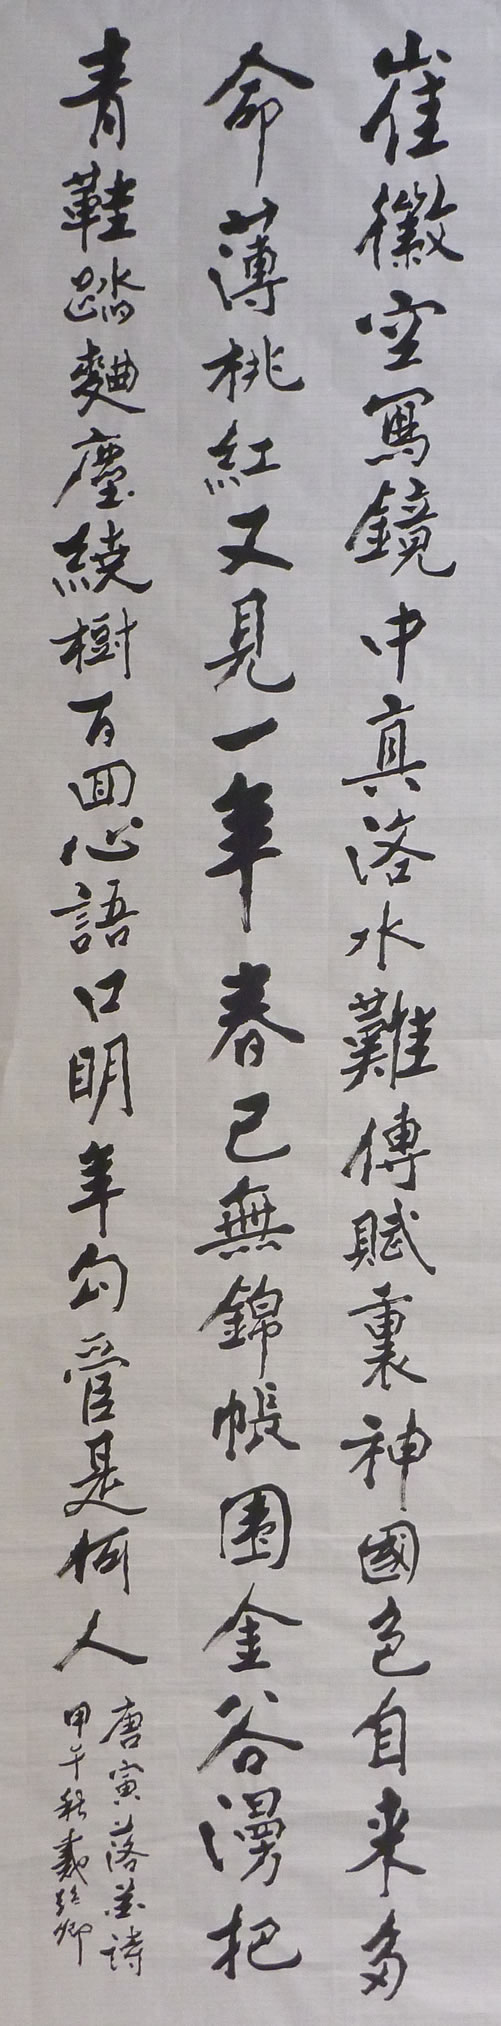 崔徽空寫鏡中真洛水難傳賦裏神國色自来多
命薄桃紅又見一年春已無錦帳圍金谷漫把
青鞋踏麯塵繞樹百回心語口明年勾管是何人
唐寅落花詩
甲午秋戴